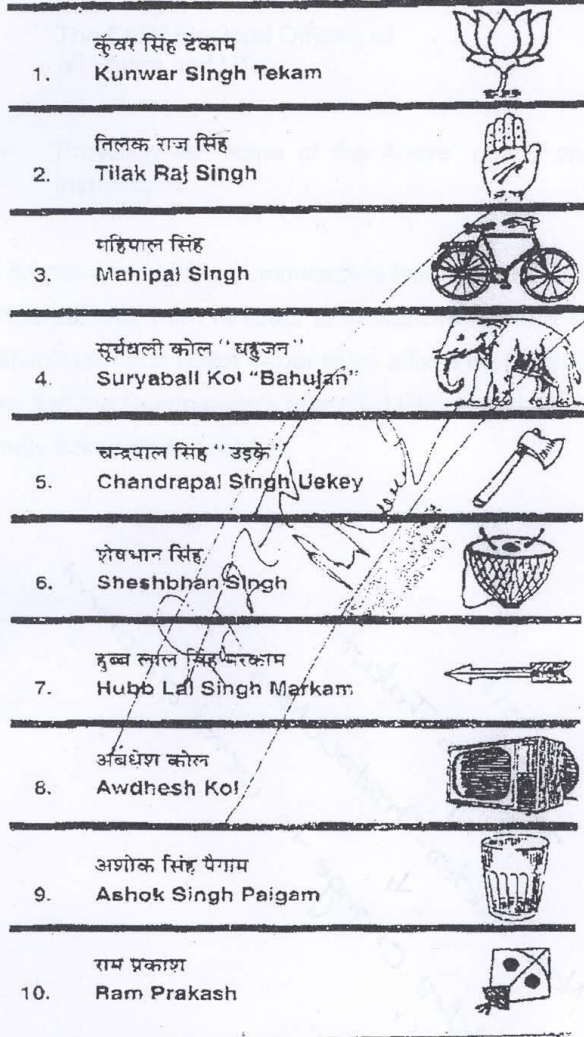 कुंवर सिंह टेकाम
1. Kunwar Singh Tekam
तिलक राज सिंह
2. Tilak Raj Singh
महिपाल सिंह
3. Mahipal Singh
सूर्यबली कोल "बहुजन"
4. Suryabali Kol "Bahujan"
चन्द्रपाल सिंह "उइके"
5. Chandrapal Singh Uekey
शेषभान सिंह
6. Sheshbhan Singh
हुब्ब लाल सिंह मरकाम
7. Hubb Lal Singh Markam
अवधेश कोल
8. Awdhesh Kol
अशोक सिंह पैगाम
9. Ashok Singh Paigam
राम प्रकाश
10. Ram Prakash